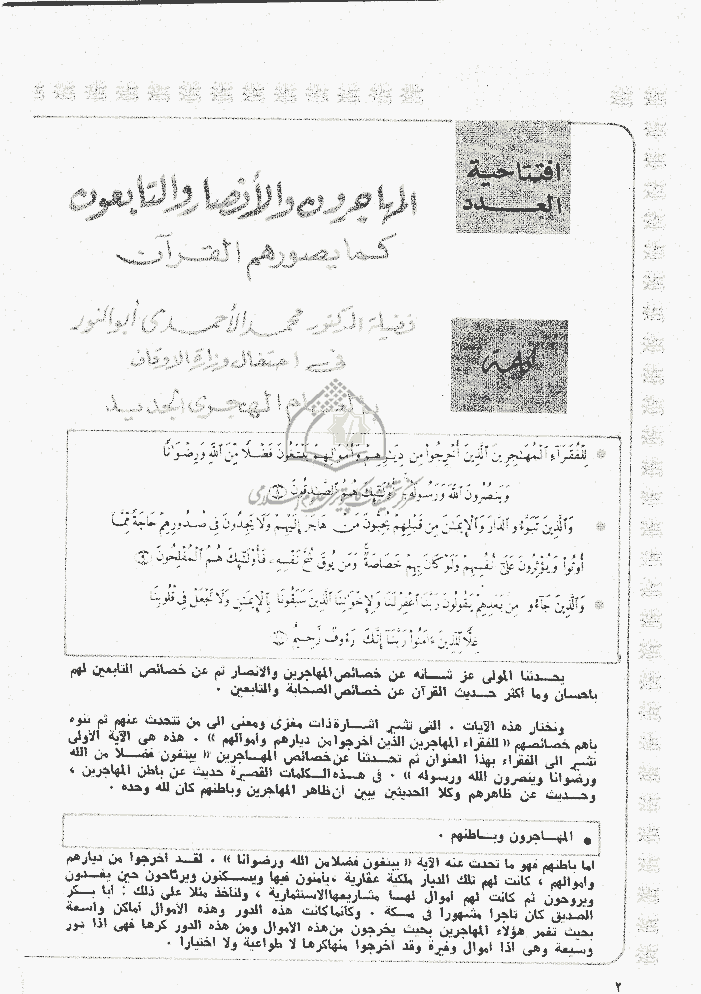 افتتاحية
العدد
المهاجرون والأنصار والتابعون
كما يصورهم القرآن
فضيلة الدكتور محمد الأحمدي أبو النور
في احتفال وزارة الأوقاف
بالعام الهجري الجديد
لِلْفُقَرَاءِ الْمُهَٰجِرِينَ الَّذِينَ أُخْرِجُوا مِن دِيَٰرِهِمْ وَأَمْوَٰلِهِمْ يَبْتَغُونَ فَضْلًا مِّنَ اللَّهِ وَرِضْوَٰنًا
وَيَنصُرُونَ اللَّهَ وَرَسُولَهُ أُولَٰئِكَ هُمُ الصَّٰدِقُونَ ٨
وَالَّذِينَ تَبَوَّءُو الدَّارَ وَالْإِيمَٰنَ مِن قَبْلِهِمْ يُحِبُّونَ مَنْ هَاجَرَ إِلَيْهِمْ وَلَا يَجِدُونَ فِي صُدُورِهِمْ حَاجَةً مِّمَّا
أُوتُوا وَيُؤْثِرُونَ عَلَىٰ أَنفُسِهِمْ وَلَوْ كَانَ بِهِمْ خَصَاصَةٌ وَمَن يُوقَ شُحَّ نَفْسِهِ فَأُولَٰئِكَ هُمُ الْمُفْلِحُونَ ٩
وَالَّذِينَ جَاءُو مِن بَعْدِهِمْ يَقُولُونَ رَبَّنَا اغْفِرْ لَنَا وَلِإِخْوَٰنِنَا الَّذِينَ سَبَقُونَا بِالْإِيمَٰنِ وَلَا تَجْعَلْ فِي قُلُوبِنَا
غِلًّا لِّلَّذِينَ ءَامَنُوا رَبَّنَا إِنَّكَ رَءُوفٌ رَّحِيمٌ ١٠
يحدثنا المولى عز شانه عن خصائص المهاجرين والانصار ثم عن خصائص التابعين لهم
باحسان وما أكثر حديث القرآن عن خصائص الصحابة والتابعين .
ونختار هذه الآيات . التى تشير اشارة ذات مغزى ومعنى الى من تتحدث عنهم ثم تنوه
بأهم خصائصهم « للفقراء المهاجرين الذين أخرجوا من ديارهم وأموالهم » . هذه هى الآية الأولى
تشير الى الفقراء بهذا العنوان ثم تحدثنا عن خصائص المهاجرين « يبتغون فضلا من الله
ورضوانا وينصرون الله ورسوله » . فى هذه الكلمات القصيرة حديث عن باطن المهاجرين ،
وحديث عن ظاهرهم وكلا الحديثين يبين أن ظاهر المهاجرين وباطنهم كان لله وحده .
● المهاجرون وباطنهم .
اما باطنهم فهو ما تحدث عنه الآية « يبتغون فضلا من الله ورضوانا » . لقد أخرجوا من ديارهم
وأموالهم ، كانت لهم تلك الديار ملكية عقارية ، يأمنون فيها ويسكنون ويرتاحون حين يغدون
ويروحون ثم كانت لهم أموال لها مشاريعها الاستثمارية ، ولنأخذ مثلا على ذلك : أبا بكر
الصديق كان تاجرا مشهورا فى مكة . وكأنما كانت هذه الدور وهذه الأموال أماكن واسعة
بحيث تغمر هؤلاء المهاجرين بحيث يخرجون من هذه الأموال ومن هذه الدور كرها فهى اذا دور
وسيعة وهى اذا أموال وفيرة وقد أخرجوا منها كرها لا طواعية ولا اختيارا .
٢